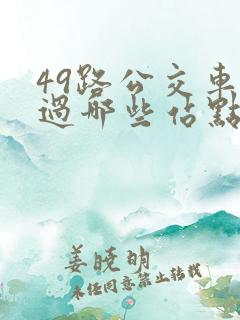 49路公交車
過哪些佔點
姜曉明
未经同意禁止转载